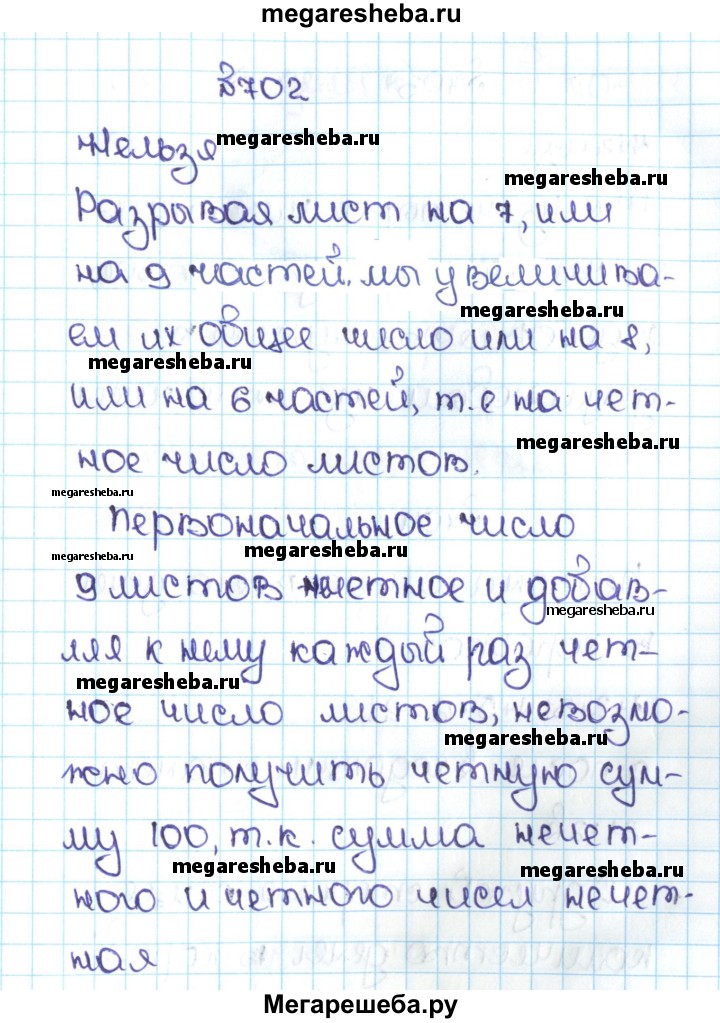 megaresheba.ru
№702
Нельзя
megaresheba.ru
megaresheba.ru
Разрывая лист на 7, или
на 9 частей. мы увеличива-
megaresheba.ru
ем их общее число или на 8,
megaresheba.ru
или на 6 частей, т.е на чет-
megaresheba.ru
ное число листов.
megaresheba.ru
Первоначальное число
megaresheba.ru
megaresheba.ru
9 листов нечетное и добав-
megaresheba.ru
ляя к нему каждый раз чет-
megaresheba.ru
ное число листов, невозмо-
megaresheba.ru
жно получить четную сум-
му 100, т.к. сумма нечет-
megaresheba.ru
megaresheba.ru
ного и четного чисел нечет-
ная
Мегарешеба.ру